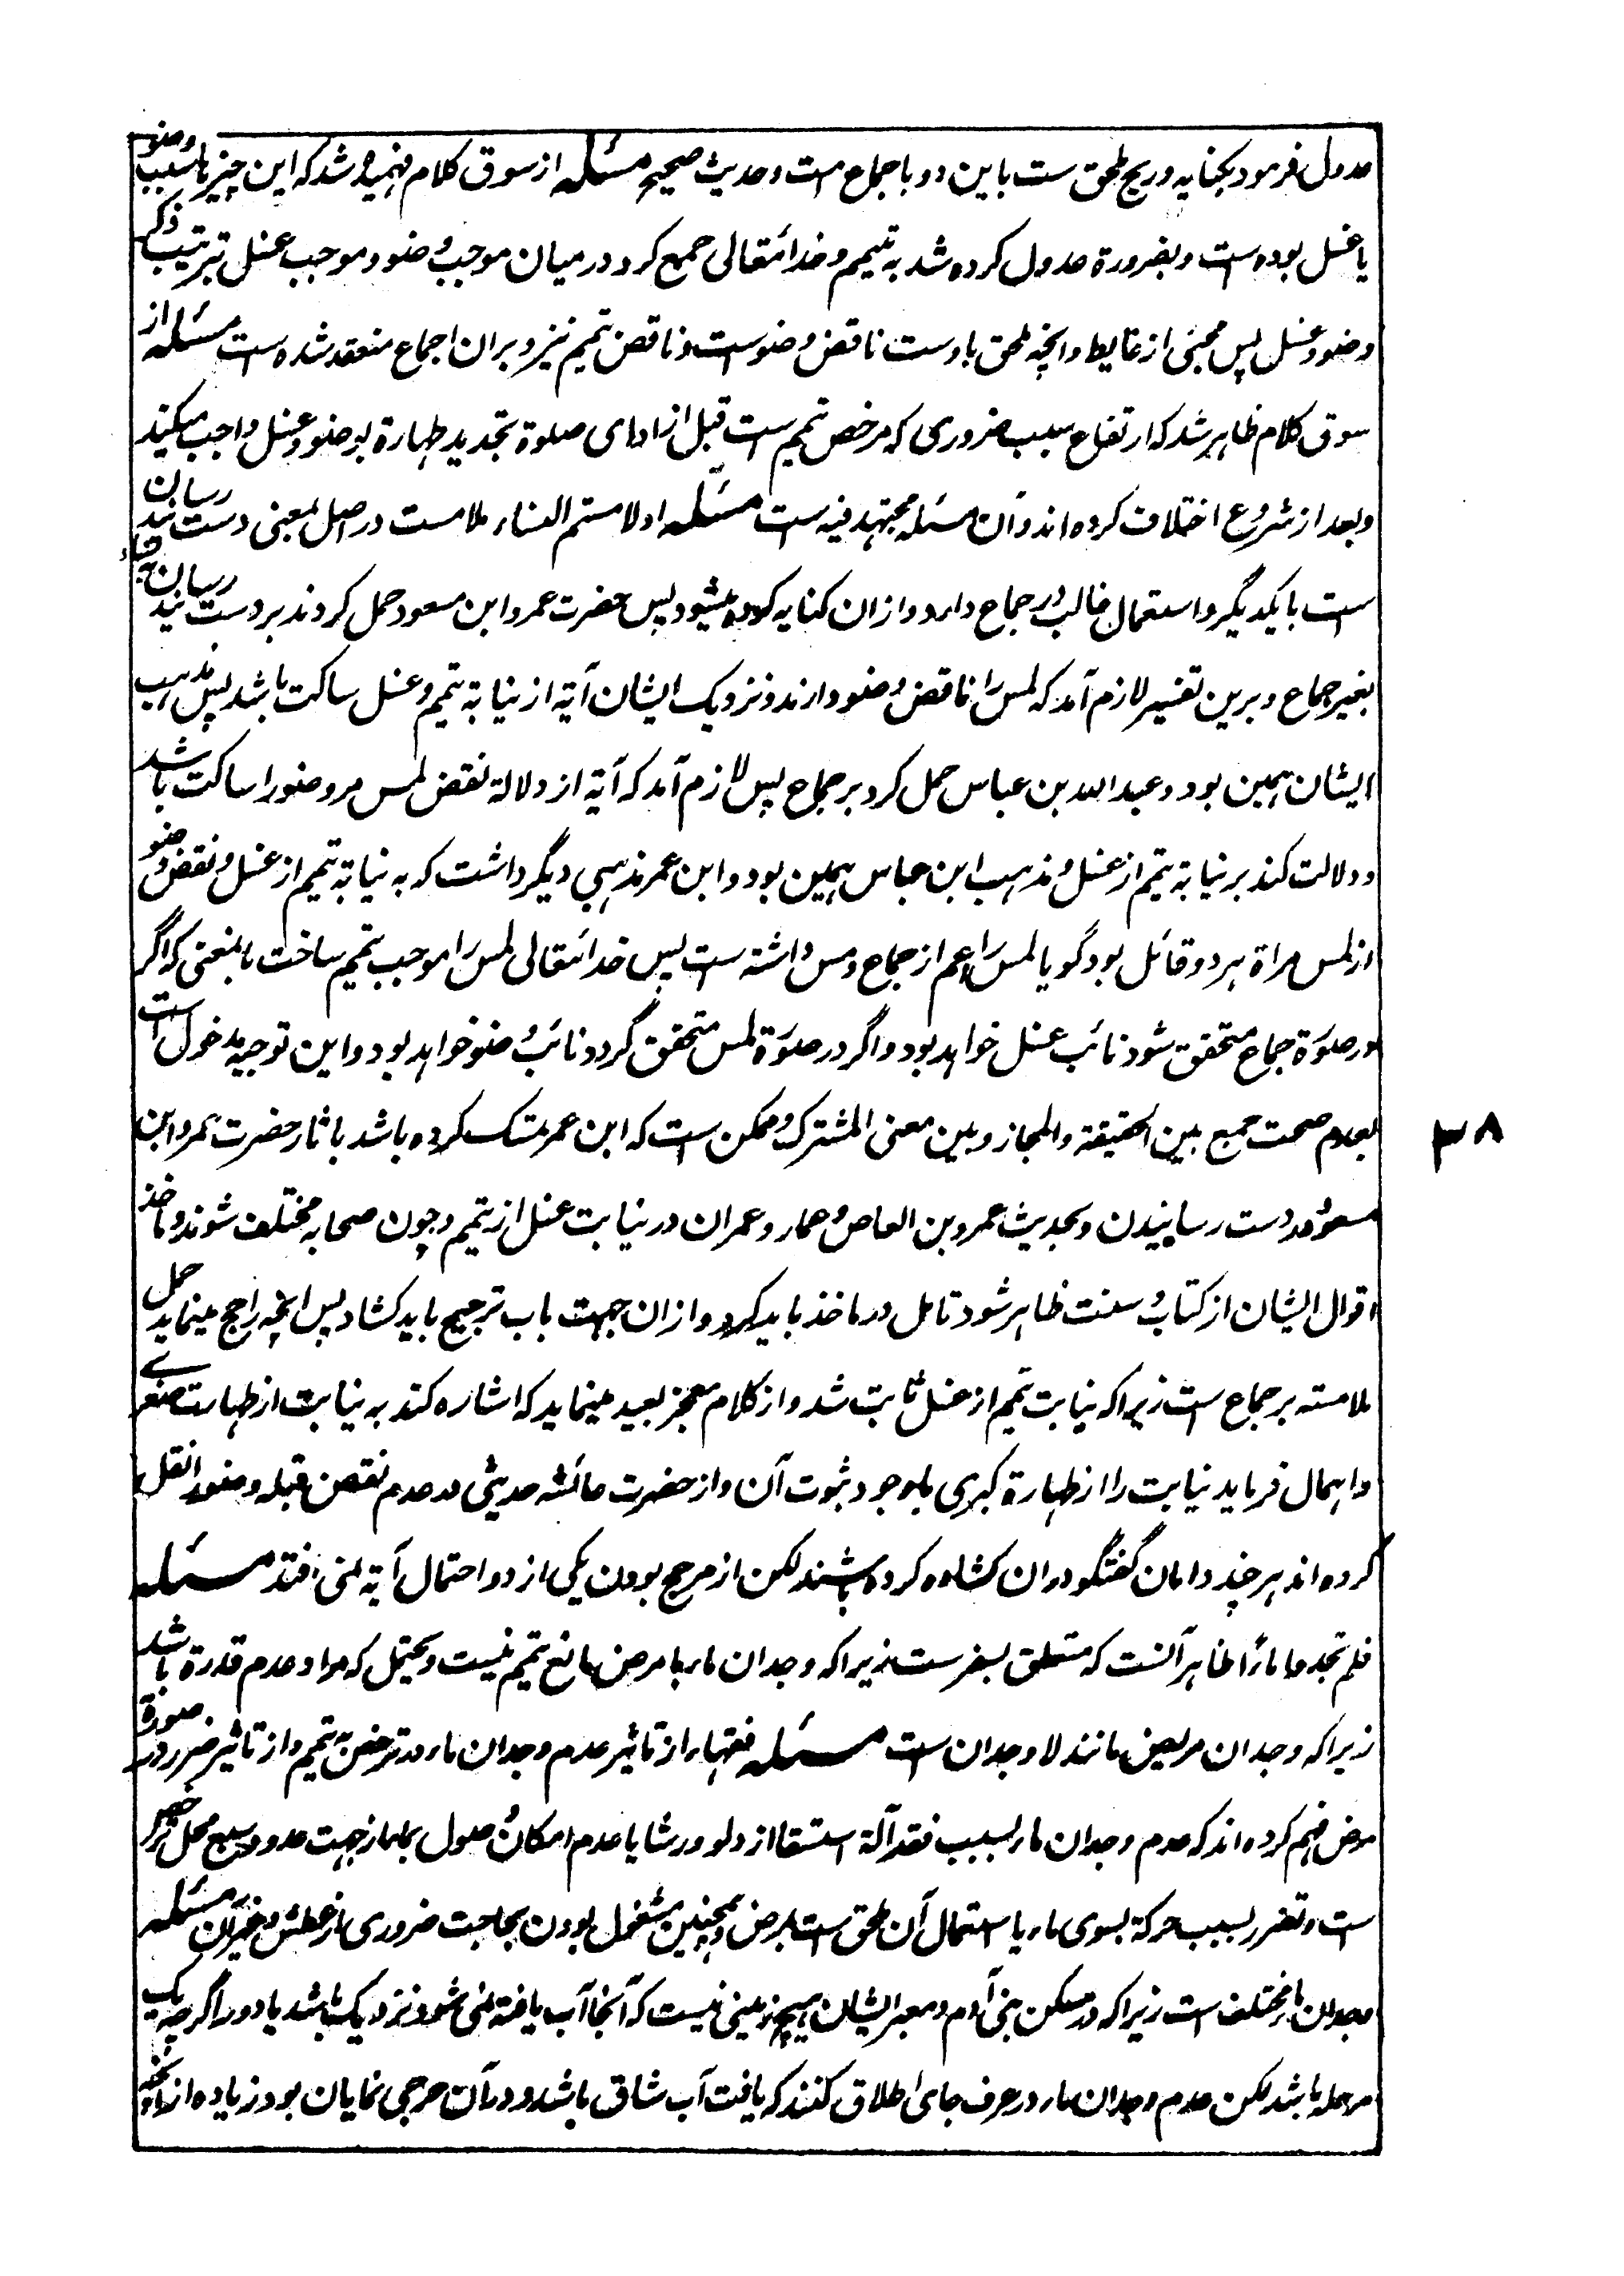 عدول فرمود بکنایه و ریح ملحق ست باین دو باجماع امت و حدیث صحیح مسئله از سوق کلام فهمیده شد که این چیزها سبب وضو
یا غسل بوده است و بضرورة عدول کرده شد به تیمم و خدا تعالی جمع کرد درمیان موجب وضو و موجب غسل بترتیب ذکر
وضو و غسل پس مجئی از غایط و انچه ملحق باوست ناقض وضوست و ناقض تیمم نیز و بران اجماع منعقد شده است مسئله از
سوق کلام ظاهر شد که ارتفاع سبب ضروری که مرخص تیمم است قبل از ادای صلوة تجدید طهارة بوضو و غسل واجب میکند
و بعد از شروع اختلاف کرده اند و آن مسئله مجتهد فیه است مسئله اولامستم النساء ملامست در اصل بمعنی دست رسانیدن
است با یکدیگر و استعمال غالب در جماع دارد و ازان کنایه کرده میشود پس حضرت عمر و ابن مسعود حمل کردند بر دست رسانیدن
بغیر جماع و برین تفسیر لازم آمد که لمس را ناقض وضو دارند و نزدیک ایشان آیة از نیابة تیمم و غسل ساکت باشد پس مذهب
ایشان همین بود و عبدالله بن عباس حمل کرد بر جماع پس لازم آمد که آیة از دلالة نقض لمس مر وضو را ساکت باشد
و دلالت کند بر نیابة تیمم از غسل و مذهب ابن عباس همین بود و ابن عمر مذهبی دیگر داشت که به نیابة تیمم از غسل و نقض وضو
از لمس مراة هر دو قائل بود گویا لمس را اعم از جماع و مس داشته است پس خدا تعالی لمس را موجب تیمم ساخت بالمعنی که اگر
در صوَرة جماع متحقق شود نائب غسل خواهد بود و اگر در صوَرة لمس متحقق گردد نائب وضو خواهد بود و این توجیه مدخول است
بعدم صحت جمع بین الحقیقة والمجاز و بین معنی المشترک و ممکن ست که ابن عمر متمسک کرده باشد باثار حضرت عمر و ابن
مسعود در دست رسانیدن و بحدیث عمرو بن العاص و عمار و عمران در نیابت غسل از تیمم و چون صحابه مختلف شوند و ماخذ
اقوال ایشان از کتاب و سنت ظاهر شود تامل در ماخذ باید کرد و ازان جهت باب ترجیح باید کشاد پس انچه راجح مینماید حمل
ملامسته بر جماع است زیرا که نیابت تیمم از غسل ثابت شد و از کلام معجز بعید مینماید که اشاره کند به نیابت از طهارت صغری
و اهمال فرماید نیابت را از طهارة کبری باوجود ثبوت آن و از حضرت عائشه حدیثی در عدم نقض قبله وضو را نقل
کرده اند هر چند دامان گفتگو دران کشاده کرده باشند لکن از مرجح بودن یکی از دو احتمال آیة نمی افتد مسئله
فلم تجدوا ماءً ظاهر آنست که متعلق بسفر ست زیرا که وجدان ماء با مرض مانع تیمم نیست و یحتمل که مراد عدم قدرة باشد
زیرا که وجدان مریض مانند لاوجدان است مسئله فقهاء از تاثیر عدم وجدان ماء در ترخص به تیمم و از تاثیر ضرر در صورة
مرض فهم کرده اند که عدم وجدان ماء بسبب فقد آلة استسقا از دلو و رشا یا عدم امکان وصول بماء از جهت عدو و سبع محل ترخص
است و تضرر بسبب حرکة بسوی ماء یا استعمال آن ملحق است بمرض و همچنین مشغول بودن بحاجت ضروری از عطش و غیرآن مسئله
وجدان ماء مختلف است زیرا که در مسکن بنی آدم و معبر ایشان هیچ زمینی نیست که آنجا آب یافته نمی شود نزدیک باشد یا دور اگرچه یک
مرحله باشد لکن عدم وجدان ماء در عرف جای اطلاق کنند که یافت آب شاق باشد و دران حرجی نمایان بود زیاده از انچه
۳۸